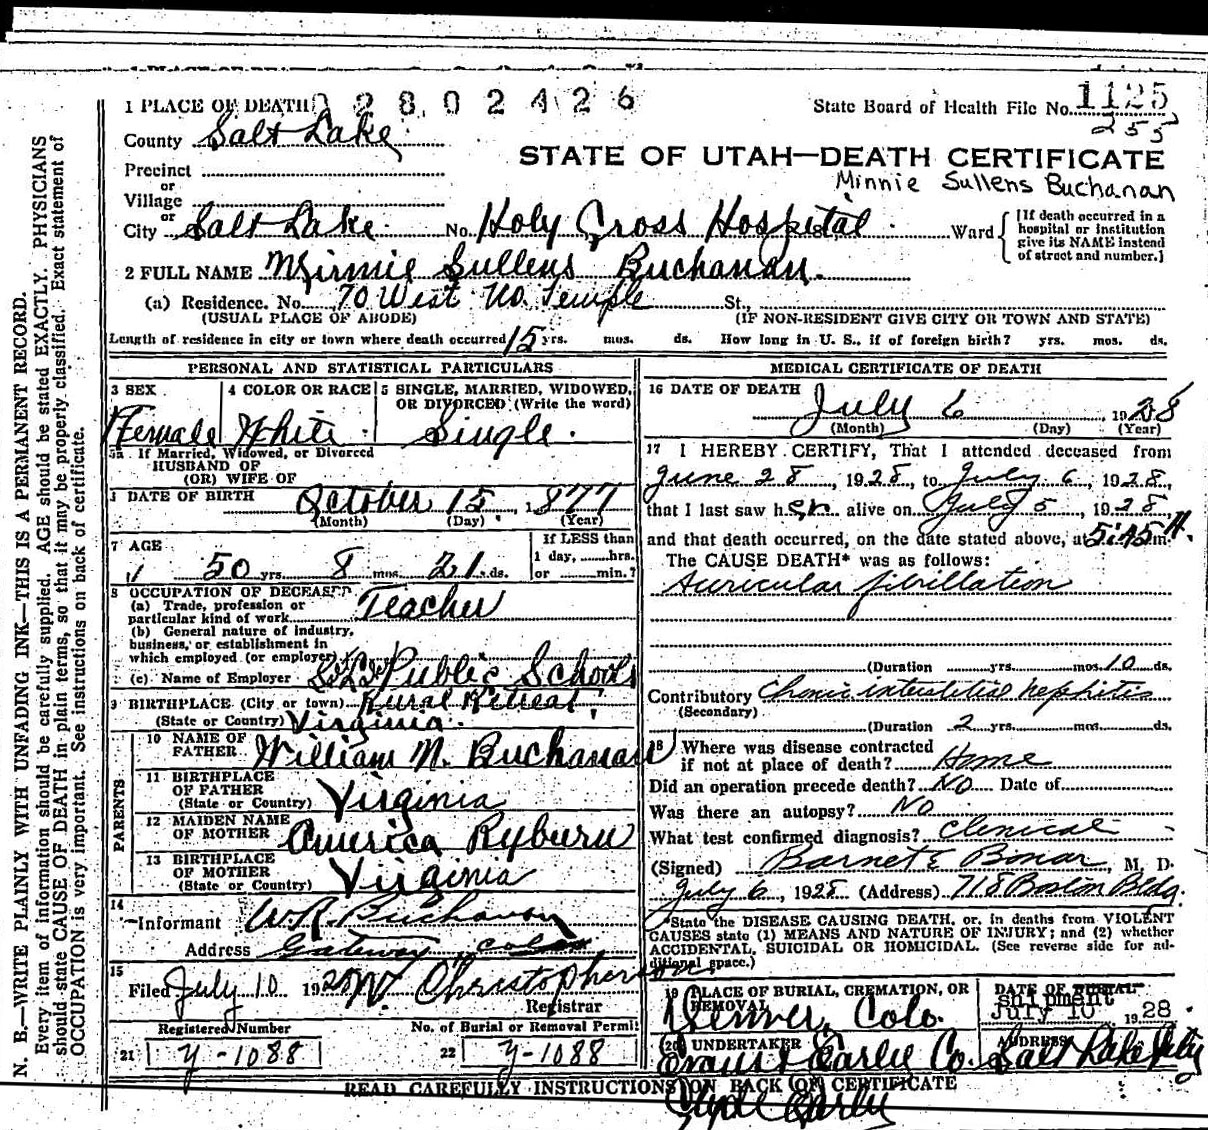 1 PLACE OF DEATH 2802426
State Board of Health File No. 1125
255
County Salt Lake
STATE OF UTAH—DEATH CERTIFICATE
Precinct
Minnie Sullens Buchanan
or
Village
or
City Salt Lake No. Holy Cross Hospital Ward
[If death occurred in a
hospital or institution
give its NAME instead
of street and number.]
2 FULL NAME Minnie Sullens Buchanan.
(a) Residence. No. 70 West No. Temple St.,
(USUAL PLACE OF ABODE) (IF NON-RESIDENT GIVE CITY OR TOWN AND STATE)
Length of residence in city or town where death occurred 15 yrs. mos. ds. How long in U. S., if of foreign birth? yrs. mos. ds.
PERSONAL AND STATISTICAL PARTICULARS
3 SEX
Female
4 COLOR OR RACE
White
5 SINGLE, MARRIED, WIDOWED,
OR DIVORCED (Write the word)
Single.
5a If Married, Widowed, or Divorced
HUSBAND OF
(OR) WIFE OF
DATE OF BIRTH October 15, 1877
(Month) (Day) (Year)
7 AGE
50 yrs. 8 mos. 21 ds.
If LESS than
1 day, hrs.
or min.?
8 OCCUPATION OF DECEASED
(a) Trade, profession or
particular kind of work Teacher
(b) General nature of industry,
business, or establishment in
which employed (or employer)
(c) Name of Employer Public Schools
9 BIRTHPLACE (City or town) Rural Retreat,
(State or Country) Virginia.
PARENTS
10 NAME OF
FATHER William N. Buchanan
11 BIRTHPLACE
OF FATHER
(State or Country) Virginia
12 MAIDEN NAME
OF MOTHER America Ryburn
13 BIRTHPLACE
OF MOTHER
(State or Country) Virginia
14
Informant W.R. Buchanan
Address Gateway, Colo
15
Filed July 10 1928 W Christopherson.
Registrar
Registered Number
21 y-1088
No. of Burial or Removal Permit
22 y-1088
MEDICAL CERTIFICATE OF DEATH
16 DATE OF DEATH
July 6 1928
(Month) (Day) (Year)
17 I HEREBY CERTIFY, That I attended deceased from
June 28, 1928, to July 6, 1928,
that I last saw her alive on July 5, 1928,
and that death occurred, on the date stated above, at 5:45 A.m.
The CAUSE DEATH* was as follows:
Auricular fibrillation
(Duration yrs. mos. 10 ds.
Contributory Chronic interstitial nephritis
(Secondary)
(Duration 2 yrs. mos. ds.
18 Where was disease contracted
if not at place of death? Home
Did an operation precede death? No Date of
Was there an autopsy? No
What test confirmed diagnosis? Clinical
(Signed) Barnet E Bonar, M. D.
July 6, 1928 (Address) 718 Boston Bldg.
*State the DISEASE CAUSING DEATH, or, in deaths from VIOLENT
CAUSES state (1) MEANS AND NATURE OF INJURY; and (2) whether
ACCIDENTAL, SUICIDAL OR HOMICIDAL. (See reverse side for ad-
ditional space.)
19 PLACE OF BURIAL, CREMATION, OR
REMOVAL
Denver, Colo.
DATE OF BURIAL
shipment
July 10 1928
20 UNDERTAKER
Evans & Early Co.
Clyde Early
ADDRESS
Salt Lake City
READ CAREFULLY INSTRUCTIONS ON BACK OF CERTIFICATE
N. B.—WRITE PLAINLY WITH UNFADING INK—THIS IS A PERMANENT RECORD.
Every item of information should be carefully supplied. AGE should be stated EXACTLY. PHYSICIANS
should state CAUSE OF DEATH in plain terms, so that it may be properly classified. Exact statement of
OCCUPATION is very important. See instructions on back of certificate.